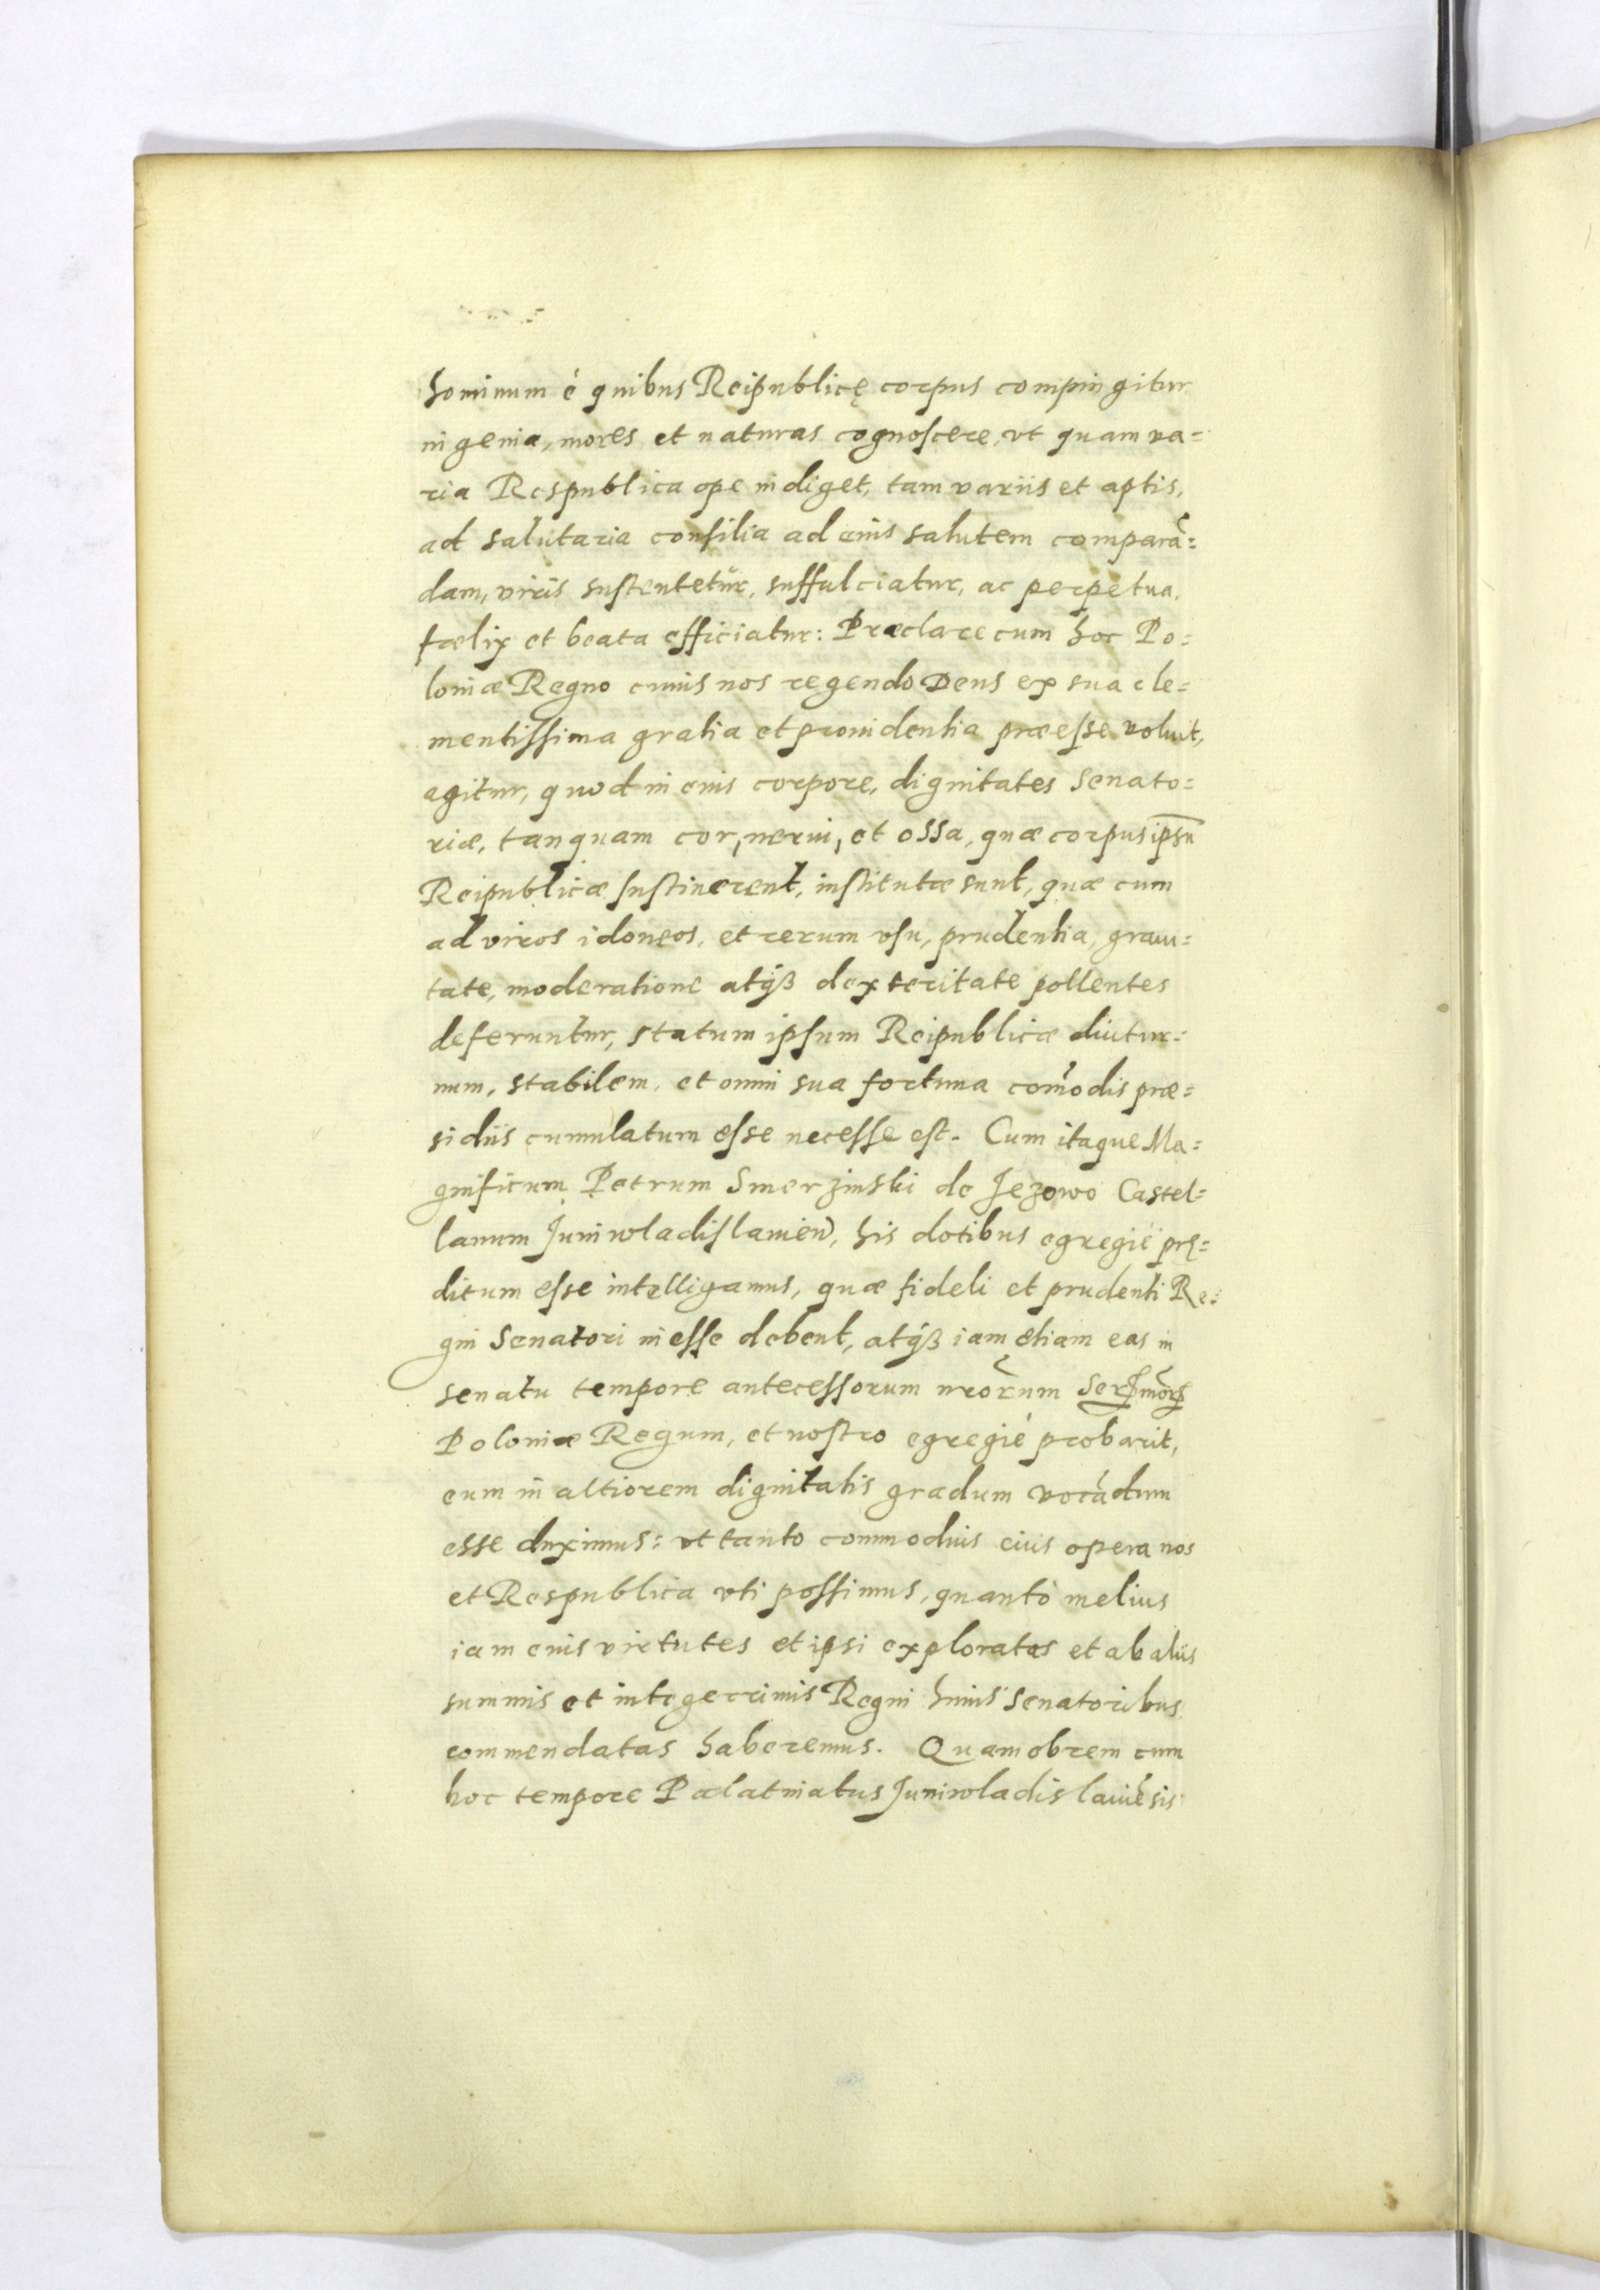 hominum é quibus Reipublicę corpus compingitur
ingenia, mores et naturas cognoscere, vt quam va=
ria Respublica ope indiget, tam variis et aptis,
ad salutaria consilia ad eius salutem comparā=
dam, viris sustentetur, suffulciatur, ac perpetua,
fœlix et beata efficiatur: Præclare cum hoc Po=
loniæ Regno cuius nos regendo Deus ex sua cle=
mentissima gratia et prouidentia præesse voluit,
agitur, quod in eius corpore, dignitates Senato=
riæ, tanquam cor, nerui, et ossa, quæ corpus ipsū
Reipublicæ sustinerent, institutæ sunt, quæ cum
ad viros idoneos, et rerum vsu, prudentia, graui=
tate, moderatione atqȝ dexteritate pollentes
deferuntur, statum ipsum Reipublicæ diutur=
num, stabilem, et omni sua fortuna com̃odis præ=
sidiis cumulatum esse necesse est. Cum itaque Ma=
gnificum Petrum Smerzinski de Jezowo Castel=
lanum Juniwladislauień, his dotibus egregié prę=
ditum esse intelligamus, quæ fideli et prudenti Re=
gni Senatori inesse debent, atqȝ iam etiam eas in
senatu tempore antecessorum nrõrum Serꝰmorꝝ
Poloniæ Regum, et nostro egregié probarit,
eum in altiorem dignitatis gradum vocādum
esse duximus: vt tanto commodius eius opera nos
et Respublica vti possimus, quantò melius
iam eius virtutes et ipsi exploratas et ab aliis
summis et integerrimis Regni huius Senatoribus
commendatas haberemus. Quamobrem cum
hoc tempore Palatinatus Juniwladislauiēsis